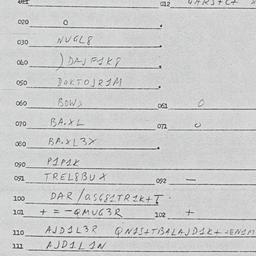 020 0
030 NUGL8
040 )DAJF1K8
050 DOKTOJR1M
060 BOWS 061 0
070 BA.XL 071 0
080 BA.XL3X
090 P1P1K
091 TREL8BUX 092 —
100 DAR/OSG81TR1K+T
101 + = -QMUG3R 102 +
110 AJD1L3R QN1S+TBALAJD1K+
111 AJD1L1N